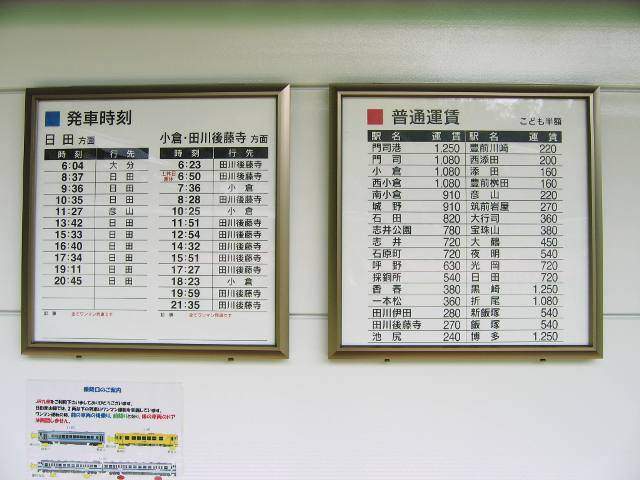 発車時刻
日田 方面
時刻 行先
6:04 大分
8:37 日田
9:36 日田
10:35 日田
11:27 彦山
13:42 日田
15:33 日田
16:40 日田
17:34 日田
19:11 日田
20:45 日田
記事 全てワンマン列車です
小倉・田川後藤寺 方面
時刻 行先
6:23 田川後藤寺
6:50 田川後藤寺
7:36 小倉
8:28 田川後藤寺
10:25 小倉
11:51 田川後藤寺
12:54 田川後藤寺
14:32 田川後藤寺
15:51 田川後藤寺
17:27 田川後藤寺
18:23 小倉
19:59 田川後藤寺
21:35 田川後藤寺
記事 全てワンマン列車です
普通運賃
こども半額
駅名 運賃 駅名 運賃
門司港 1,250 豊前川崎 220
門司 1,080 西添田 200
小倉 1,080 添田 160
西小倉 1,080 豊前桝田 160
南小倉 910 彦山 220
城野 910 筑前岩屋 270
石田 820 大行司 360
志井公園 780 宝珠山 380
志井 720 大鶴 450
石原町 720 夜明 540
呼野 630 光岡 720
採銅所 540 日田 720
香春 380 黒崎 1,250
一本松 360 折尾 1,080
田川伊田 280 新飯塚 540
田川後藤寺 270 飯塚 540
池尻 240 博多 1,250
乗降口のご案内